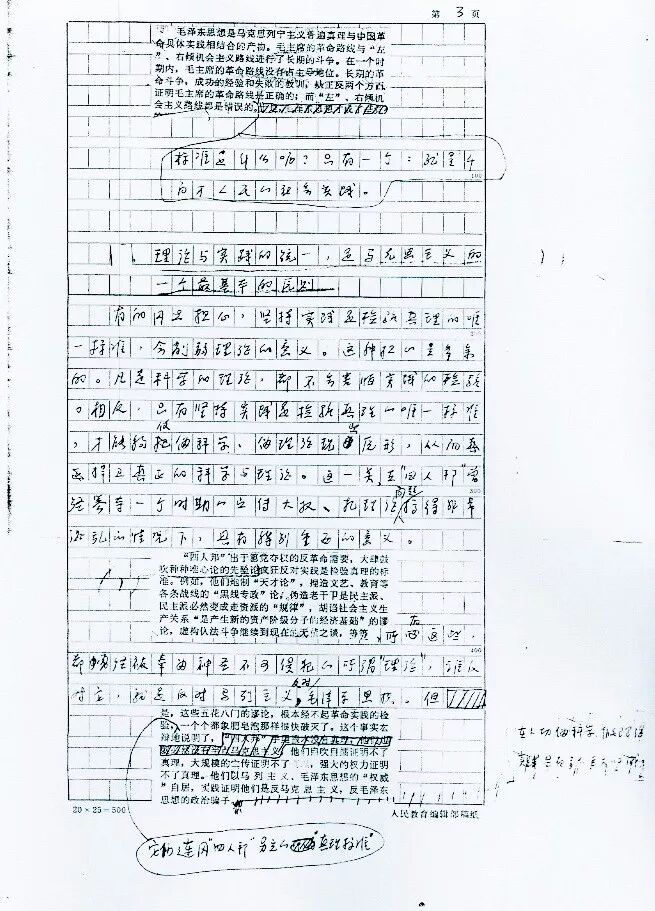 第 3 页
毛泽东思想是马克思列宁主义普遍真理与中国革
命具体实践相结合的产物。毛主席的革命路线与“左
”、右倾机会主义路线进行了长期的斗争。在一个时
期内，毛主席的革命路线没有占主导地位。长期的革
命斗争，成功的经验和失败的教训，从正反两个方面
证明毛主席的革命路线是正确的；而“左”、右倾机
会主义路线都是错误的。
标准是什么呢？只有一个：就是千
百万人民的社会实践。
100
理论与实践的统一，是马克思主义的
一个最基本的原则
有的同志担心，坚持实践是检验真理的唯
一标准，会削弱理论的意义。这种担心是多余
的。凡是科学的理论，都不会害怕实践的检验
。相反，只有坚持实践是检验真理的唯一标准
，才能够使伪科学、伪理论现出原形，从而
捍卫真正的科学与理论。这一点，在“四人帮”曾
300
问题
情况下，具有特别重要的意义。
“四人帮”出于篡党夺权的反革命需要，大肆鼓
吹种种唯心论的先验论，疯狂反对实践是检验真理的标
准。例如，他们炮制“天才论”，捏造文艺、教育等
各条战线的“黑线专政”论，伪造老干部是民主派、
民主派必然变成走资派的“规律”，胡诌社会主义生
产关系“是产生新的资产阶级分子的经济基础”的谬
论，虚构儒法斗争继续到现在的无稽之谈，等等，所有这些，
400
都曾经被奉为神圣不可侵犯的所谓“理论”，谁反
对它，就是反对马列主义，反对毛泽东思想。但
是，这些五花八门的谬论，根本经不起革命实践的检
验，一个个都象肥皂泡那样很快破灭了。这个事实雄
辩地说明了，他们自吹自擂证明不了
真理，大规模的宣传证明不了真理，强大的权力证明
不了真理。他们以马列主义、毛泽东思想的“权威
”自居，实践证明他们是反马克思主义，反毛泽东
思想的政治骗子
20×25＝500
人民教育编辑部稿纸
“四人帮”另立的“真理标准”